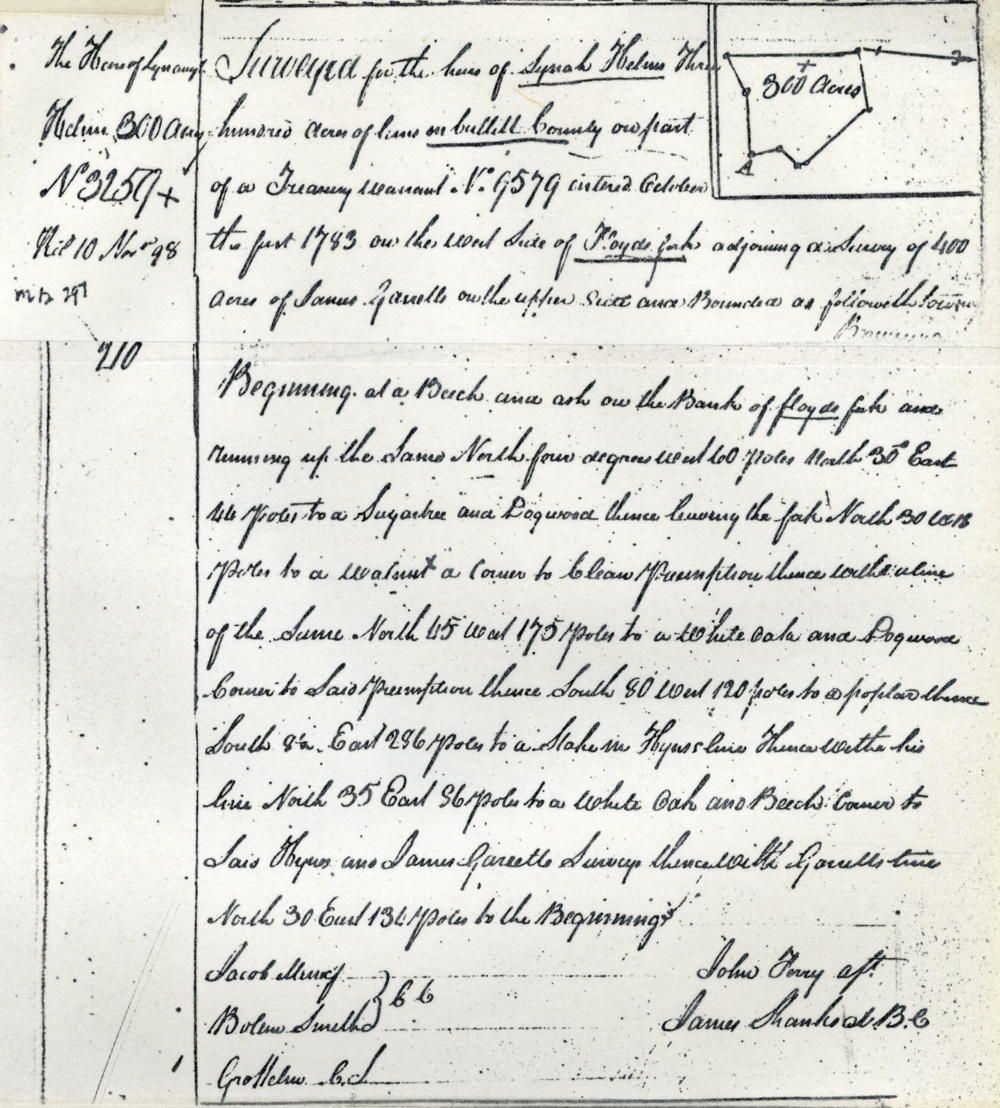 The Heirs of Lynaugh
Helm 300 Acres
No 3259+
Nil 10 Novr 98
210
Surveyed for the heirs of Lynah Helms Three
hundred acres of land in bullett County on part
of a Treasury warrant No. 9579 entered October
the first 1783 on the west Side of Floyds fork adjoining a Survey of 400
acres of James Garretts on the upper Side and Bounded as followeth
300 Acres
A
Beginning at a Beech and ash on the Bank of floyds fork and
running up the Same North four degrees West 60 poles North 30 East
44 poles to a Sugartree and Dogwood thence leaving the fork North 30 W 18
poles to a Walnut a Corner to Clean Preemption thence with a line
of the Same North 45 West 175 poles to a White Oak and Dogwood
Corner to Said Preemption thence South 80 West 120 poles to a poplar thence
South East 286 poles to a Stake in Hynes line Thence with his
line North 35 East 56 poles to a White Oak and Beech Corner to
Said Hynes and James Garretts Survey thence with Garretts line
North 30 East 134 poles to the Beginning
Jacob
John Terry ast.
Bolen Smith
James Shanks d B.C
C.S